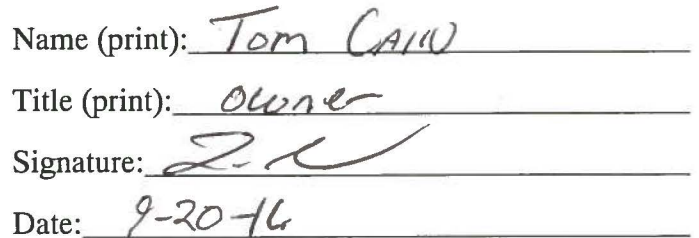 Name (print): Tom CAIN
Title (print): Owner
Signature:
Date: 9-20-16